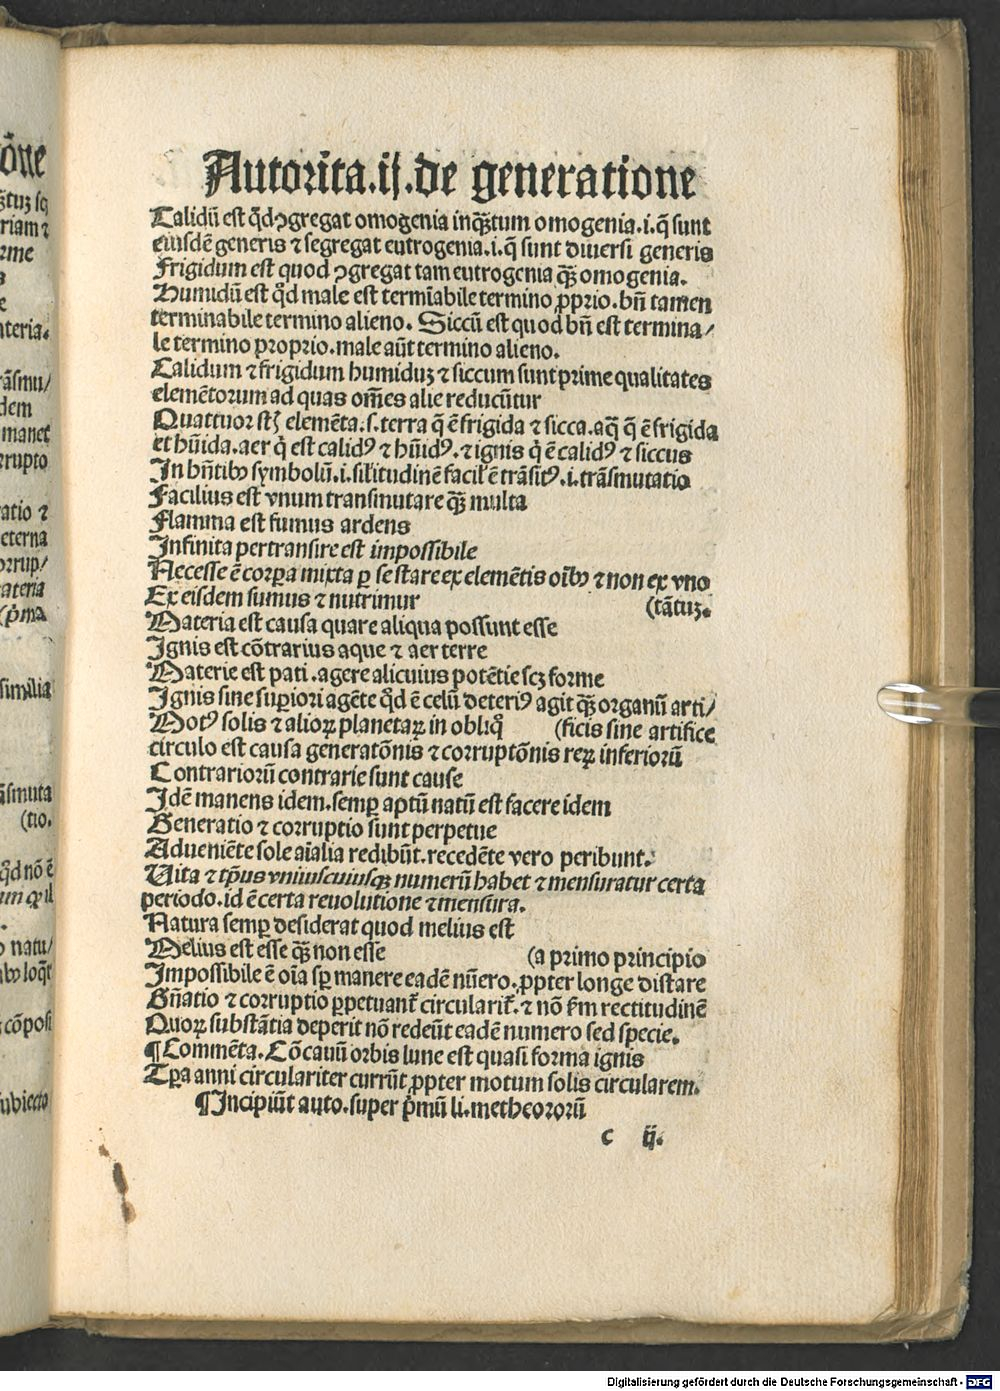 Autorita.ij.de generatione
Calidū est qd̄ ꝯgregat omogenia inqꝫtum omogenia.i.q̄ sunt
eiusdē generis ⁊ segregat eutrogenia.i.q̄ sunt diuersi generis
Frigidum est quod ꝯgregat tam eutrogenia qꝫ omogenia.
Humidū est qd̄ male est termīabile termino ꝓprio.bn̄ tamen
terminabile termino alieno. Siccū est quod bn̄ est termina/
le termino proprio.male aūt termino alieno.
Calidum ⁊ frigidum humiduꝫ ⁊ siccum sunt prime qualitates
elemētorum ad quas oēs alie reducūtur
Quattuor st̄ elemēta.s.terra q̄ ē frigida ⁊ sicca.aq̄ q̄ ē frigida
et hūida.aer q̄ est calidꝰ ⁊ hūidꝰ.⁊ ignis q̄ ē calidꝰ ⁊ siccus
In hn̄tibꝰ symbolū.i.silitudinē facil̄ ē trāsitꝰ.i.trāsmutatio
Facilius est vnum transmutare qꝫ multa
Flamma est fumus ardens
Infinita pertransire est impossibile
Necesse ē corꝑa mixta ꝑ se stare ex elemētis oībꝰ ⁊ non ex vno
Ex eisdem sumus ⁊ nutrimur (tātuꝫ.
Materia est causa quare aliqua possunt esse
Ignis est cōtrarius aque ⁊ aer terre
Materie est pati.agere alicuius potētie scꝫ forme
Ignis sine suꝑiori agēte qd̄ ē celū deteriꝰ agit qꝫ organū arti/
Motꝰ solis ⁊ alioꝝ planetaꝝ in obliq̄ (ficis sine artifice
circulo est causa generatōnis ⁊ corruptōnis reꝝ inferiorū
Contrariorū contrarie sunt cause
Idē manens idem.semꝑ aptū natū est facere idem
Generatio ⁊ corruptio sunt perpetue
Adueniēte sole aīalia redibūt.recedēte vero peribunt.
Uita ⁊ tp̄us vniuscuiusqꝫ numerū habet ⁊ mensuratur certa
periodo.id ē certa reuolutione ⁊ mensura.
Natura semꝑ desiderat quod melius est
Melius est esse qꝫ non esse (a primo principio
Impossibile ē oīa sꝑ manere eadē nūero.ꝓpter longe distare
Gn̄atio ⁊ corruptio ꝑpetuant̄ circularit̄.⁊ nō s̄m rectitudinē
Quoꝝ substātia deperit nō redeūt eadē numero sed specie.
¶Commēta.Cōcauū orbis lune est quasi forma ignis
Tꝑa anni circulariter currūt ꝓpter motum solis circularem.
¶Incipiūt auto.super p̄mū li.metheororū
c ij.
Digitalisierung gefördert durch die Deutsche Forschungsgemeinschaft - DFG